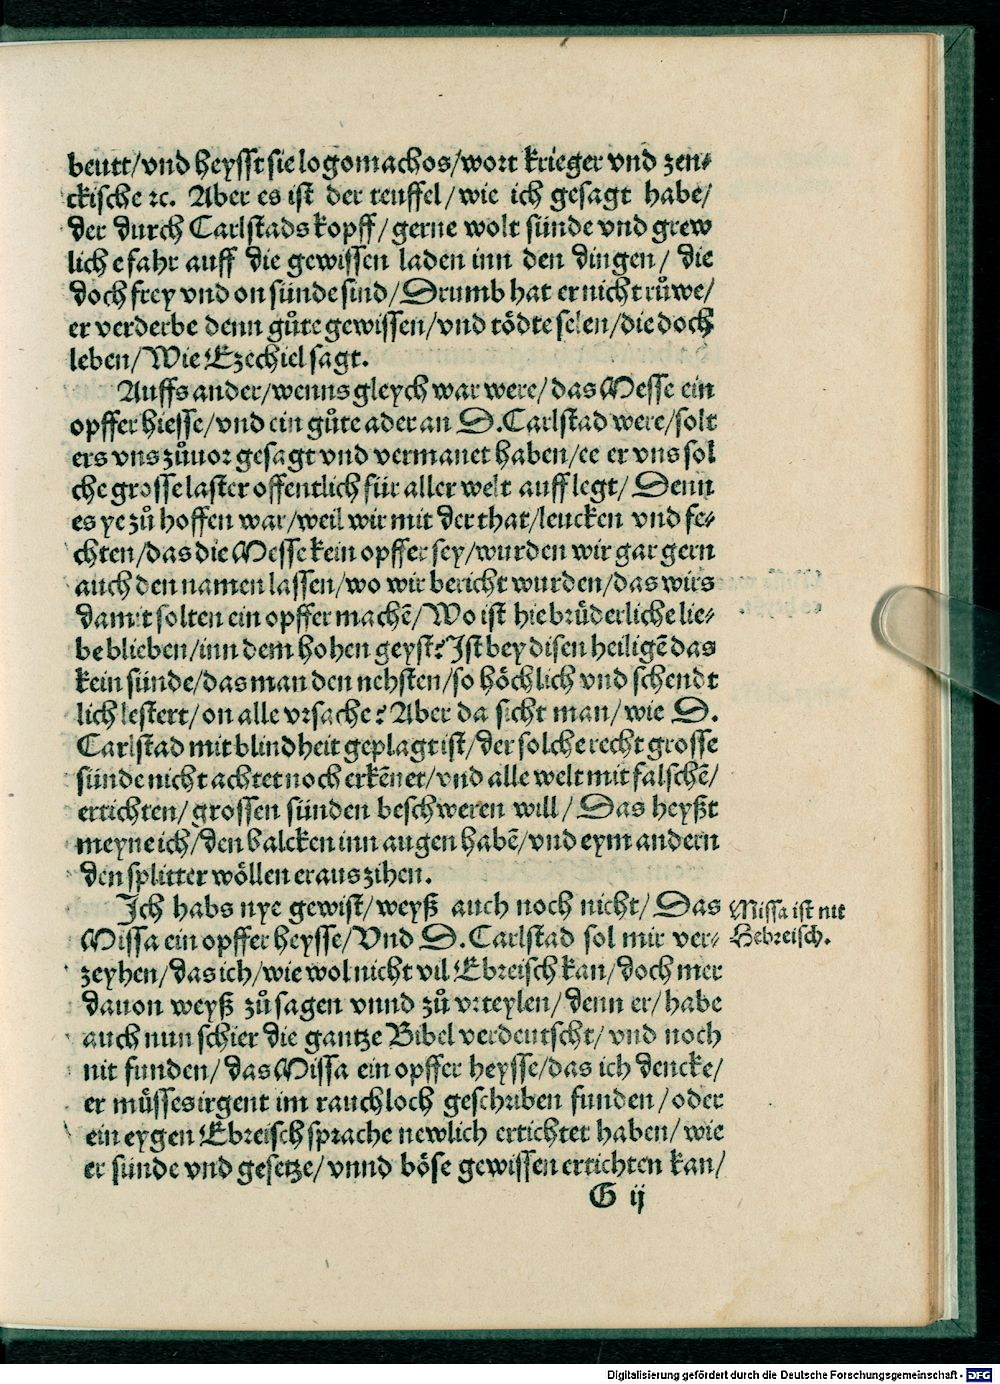 beutt/vnd heysst sie logomachos/wort krieger vnd zen⸗
ckische ꝛc. Aber es ist der teuffel/wie ich gesagt habe/
der durch Carlstads kopff/gerne wolt sünde vnd grew
lich e fahr auff die gewissen laden inn den dingen/ die
doch frey vnd on sünde sind/Drumb hat er nicht růwe/
er verderbe denn gůte gewissen/vnd tödte selen/die doch
leben/Wie Ezechiel sagt.
Auffs ander/wenns gleych war were/das Messe ein
opffer hiesse/vnd ein gůte ader an D.Carlstad were/solt
ers vns zůuor gesagt vnd vermanet haben/ee er vns sol
che grosse laster offentlich für aller welt auff legt/ Denn
es ye zů hoffen war/weil wir mit der that/leucken vnd fe⸗
chten/das die Messe kein opffer sey/wurden wir gar gern
auch den namen lassen/wo wir bericht wurden/das wirs
damit solten ein opffer machē/Wo ist hie brüderliche lie⸗
be blieben/inn dem hohen geyst? Ist bey disen heiligē das
kein sünde/das man den nehsten/so höchlich vnd schendt
lich lestert/on alle vrsache? Aber da sicht man/wie D.
Carlstad mit blindheit geplagt ist/der solche recht grosse
sünde nicht achtet noch erkēnet/vnd alle welt mit falschē/
ertichten/grossen sünden beschweren will/ Das heyßt
meyne ich/den balcken inn augen habē/vnd eym andern
den splitter wöllen eraus zihen.
Ich habs nye gewist/weyß auch noch nicht/ Das
Missa ein opffer heysse/Vnd D. Carlstad sol mir ver⸗
zeyhen/das ich/wie wol nicht vil Ebreisch kan/doch mer
dauon weyß zů sagen vnnd zů vrteylen/denn er/habe
auch nun schier die gantze Bibel verdeutscht/vnd noch
nit funden/das Missa ein opffer heysse/das ich dencke/
er müsses irgent im rauchloch geschriben funden/oder
ein eygen Ebreisch sprache newlich ertichtet haben/wie
er sünde vnd gesetze/vnnd böse gewissen ertichten kan/
G ij
Missa ist nit
Hebreisch.
Digitalisierung gefördert durch die Deutsche Forschungsgemeinschaft - DFG